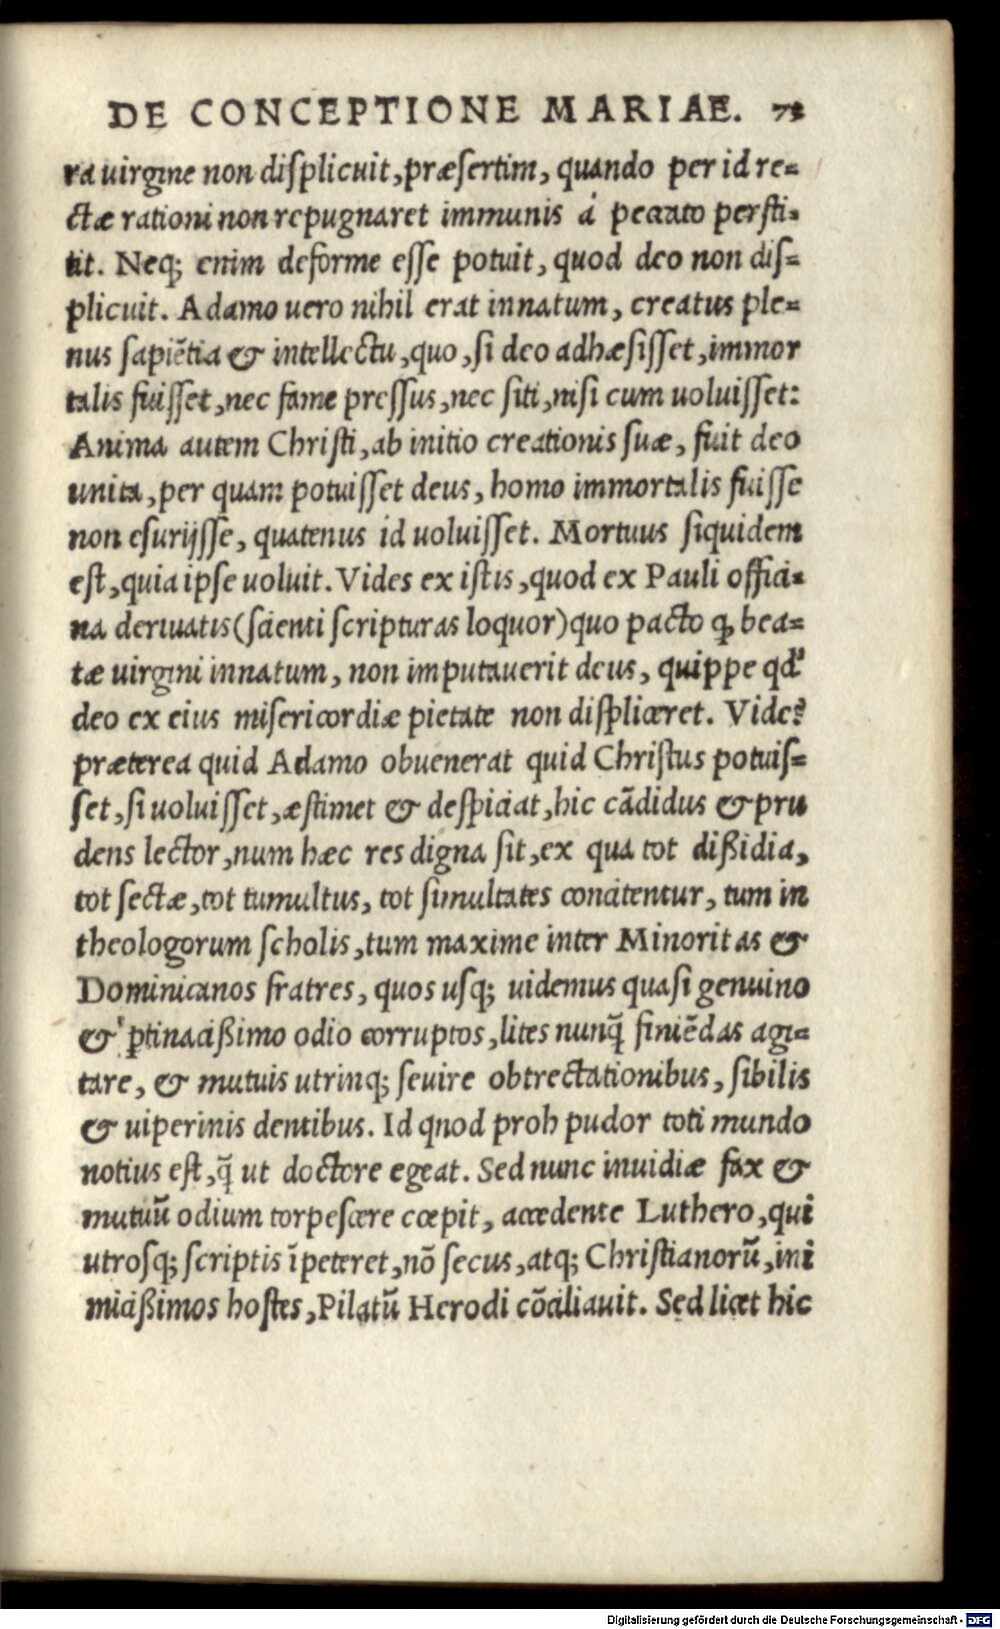 DE CONCEPTIONE MARIAE. 73
ra uirgine non diſplicuit, præſertim, quando per id re=
ctæ rationi non repugnaret immunis á peccato perſti=
tit. Neq; enim deforme eſſe potuit, quod deo non diſ=
plicuit. Adamo uero nihil erat innatum, creatus ple=
nus ſapiẽtia & intellectu, quo, ſi deo adhæſiſſet, immor
talis fuiſſet, nec fame preſſus, nec ſiti, niſi cum uoluiſſet:
Anima autem Chriſti, ab initio creationis ſuæ, fuit deo
unita, per quam potuiſſet deus, homo immortalis fuiſſe
non eſurijſſe, quatenus id uoluiſſet. Mortuus ſiquidem
eſt, quia ipſe uoluit. Vides ex iſtis, quod ex Pauli offici=
na deriuatis (ſcienti ſcripturas loquor) quo pacto ꝙ bea=
tæ uirgini innatum, non imputauerit deus, quippe qd'
deo ex eius miſericordiæ pietate non diſpliceret. Vides
præterea quid Adamo obuenerat quid Chriſtus potuiſ=
ſet, ſi uoluiſſet, æſtimet & deſpiciat, hic cãdidus & pru
dens lector, num hæc res digna ſit, ex qua tot dißidia,
tot ſectæ, tot tumultus, tot ſimultates concitentur, tum in
theologorum ſcholis, tum maxime inter Minoritas &
Dominicanos fratres, quos uſq; uidemus quaſi genuino
& ꝑtinacißimo odio corruptos, lites nunq̃ finiẽdas agi=
tare, & mutuis utrinq; ſeuire obtrectationibus, ſibilis
& uiperinis dentibus. Id quod proh pudor toti mundo
notius eſt, q̃ ut doctore egeat. Sed nunc inuidiæ fax &
mutuũ odium torpeſcere cœpit, accedente Luthero, qui
utroſq; ſcriptis ĩpeteret, nõ ſecus, atq; Chriſtianorũ, ini
micißimos hoſtes, Pilatũ Herodi cõciliauit. Sed licet hic
Digitalisierung gefördert durch die Deutsche Forschungsgemeinschaft - DFG